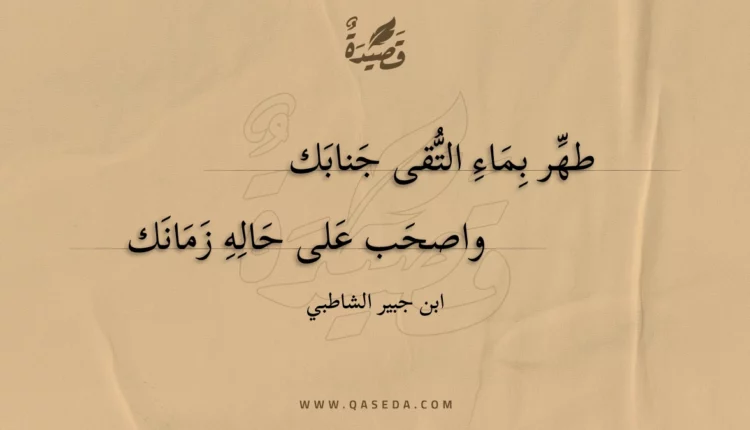 قَصِيْدَةٌ
طهِّر بِمَاءِ التُّقى جَنابَك
واصحَب عَلى حَالِهِ زَمَانَك
ابن جبير الشاطبي
WWW.QASEDA.COM